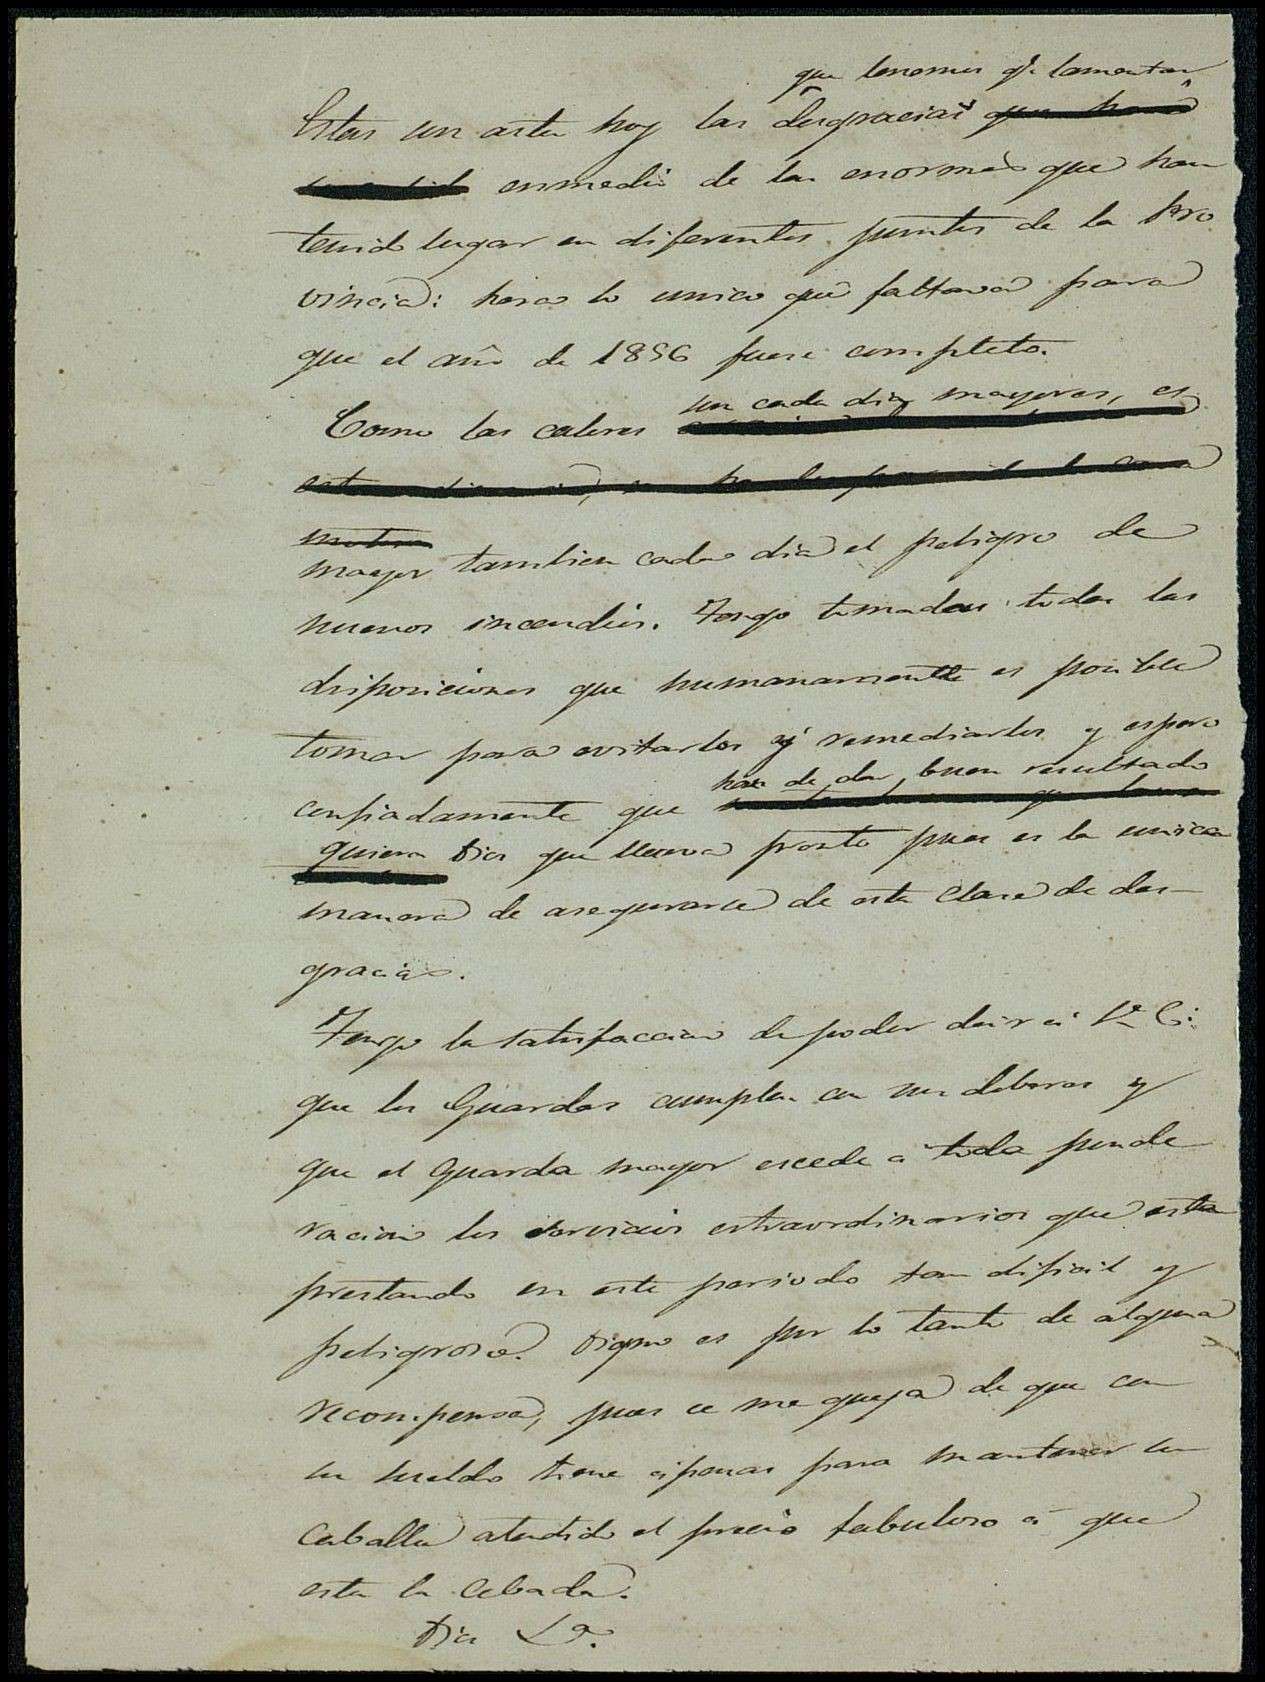 que tenemos q.e lamentar
Estas son asta hoy las desgracias que han
enmedio de las enormes que han
tenido lugar en diferentes puntos de la Pro
vincia: hera lo unico que faltava para
que el año de 1856 fuese completo.
son cada dia mayores, es
Como los calores
mayor tambien cada dia el peligro de
nuevos incendios. Tengo tomadas todas las
disposiciones que humanamente es posible
tomar para evitarlos y remediarlos y espero
han de dar buen resultado
confiadamente que
quiera Dios que llueva pronto pues es la unica
manera de asegurarse de esta clase de des-
gracias.
Tengo la satisfaccion de poder decir á V. E.
que los Guardas cumplen con sus deberes y
que el Guarda mayor escede a toda ponde
racion los servicios estraordinarios que esta
prestando en este periodo tan dificil y
peligroso. Digno es por lo tanto de alguna
recompensa, pues se me queja de que con
su sueldo tiene apenas para mantener su
caballo atendido el precio fabuloso á que
esta la cebada.
Dios